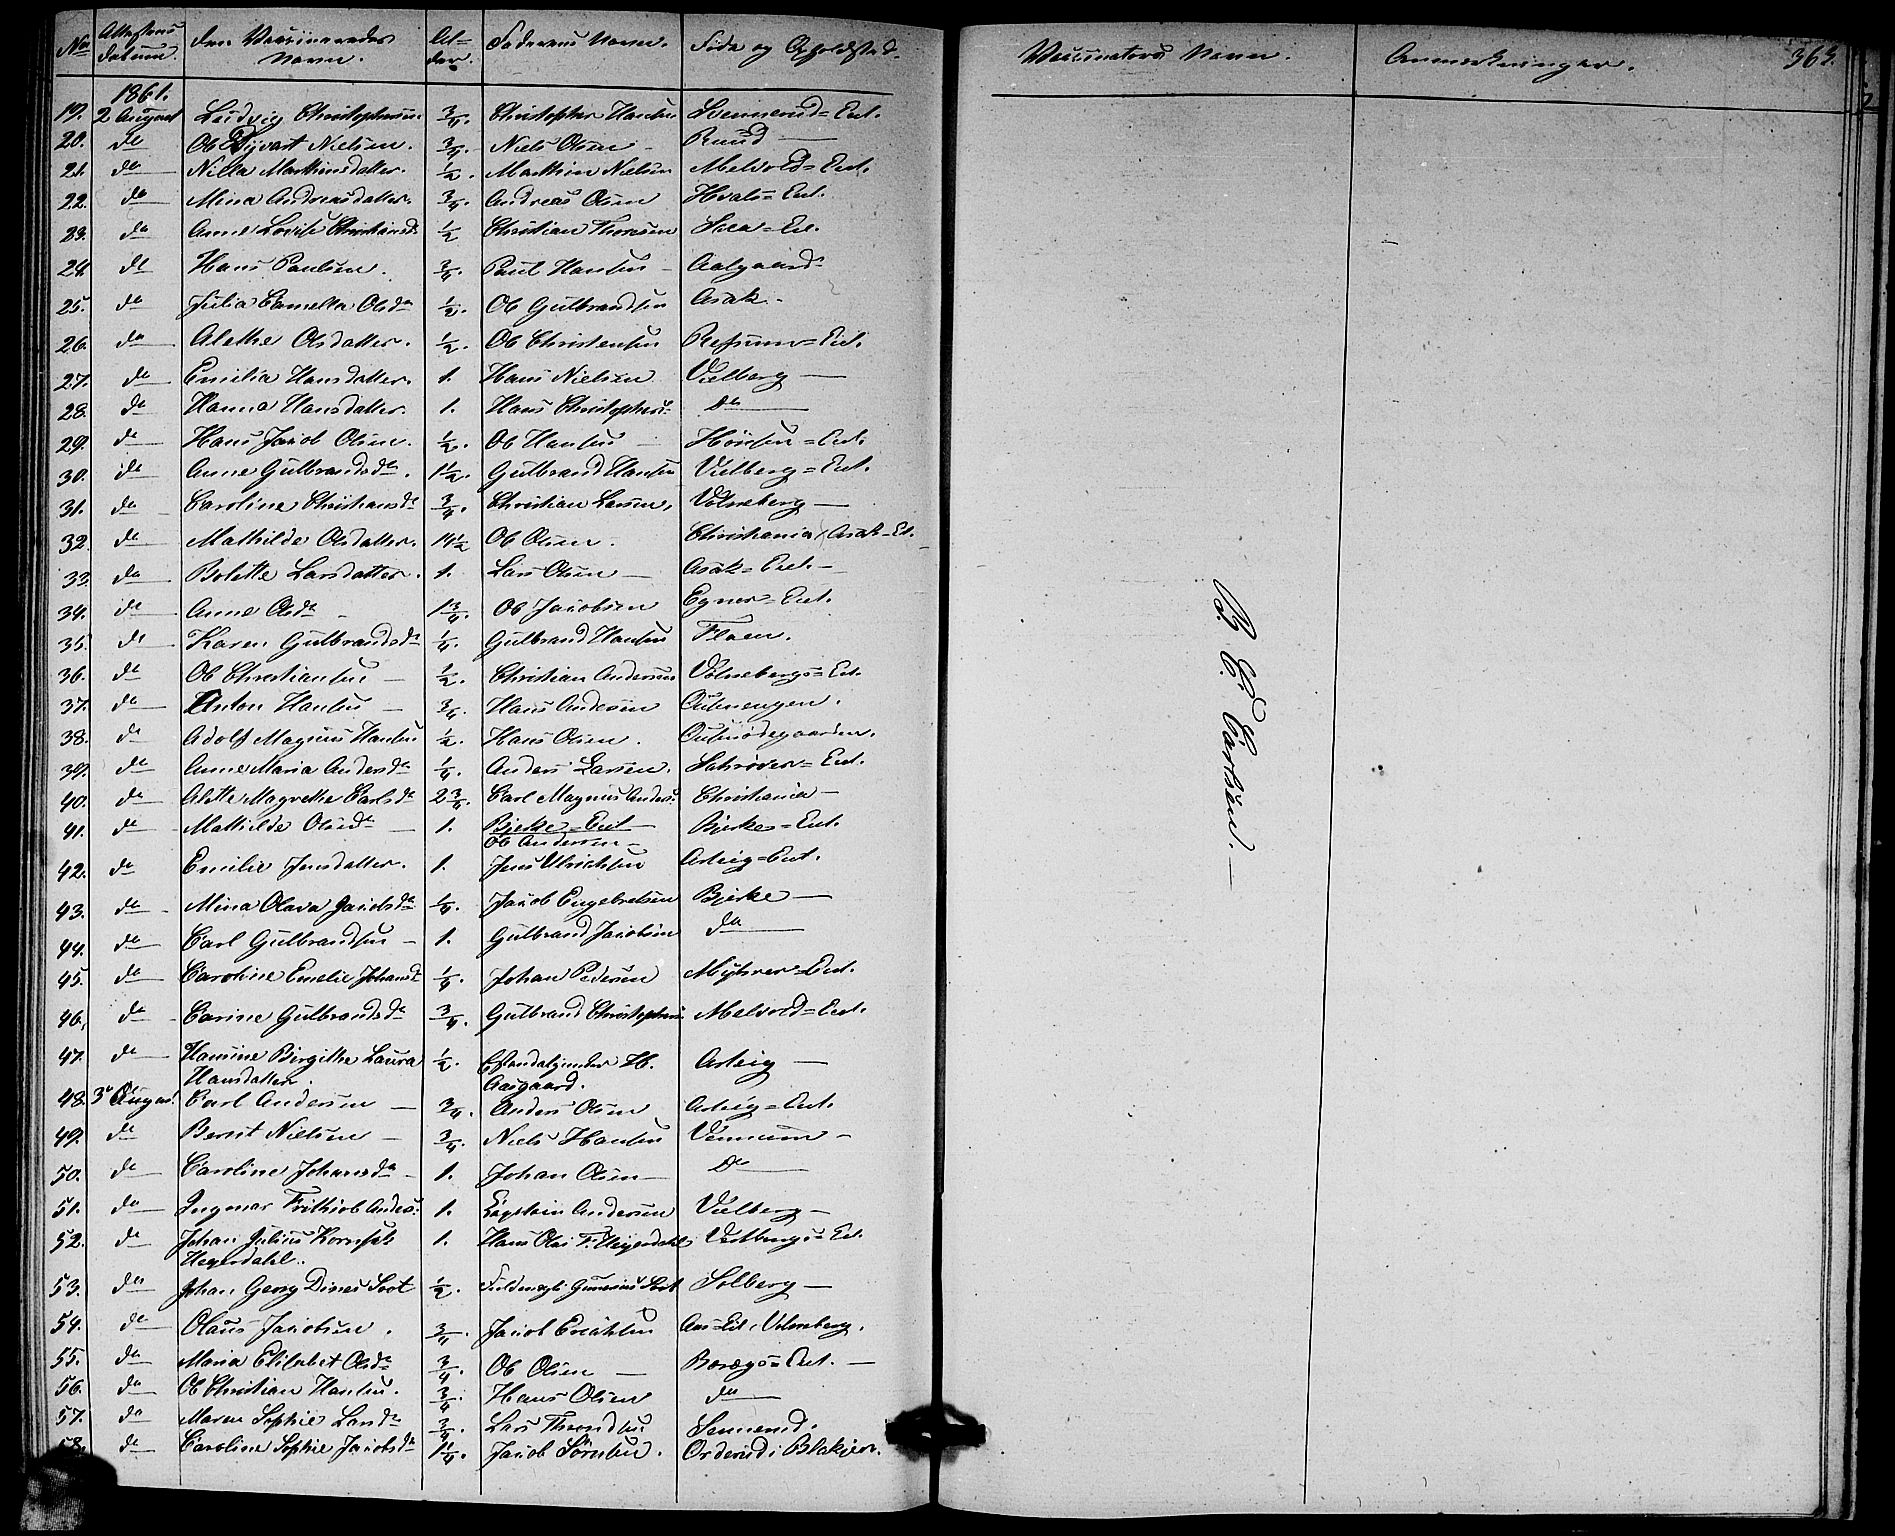 No Attestens Datum. Den Vaccineredes Navn. Al-der. Faderens Navn. Føde og Opholdssted.
Vaccinators Navn. Anmerkninger. 363.
1861.
19. 2 August Ludvig Christophersen. 3/4. Christopher Hansen Svennerud=Eet.
20. do Ole Syvart Nielsen. 3/4. Niels Olsen - Ruud —
21. do Nilla Marthinsdatter. 1/2. Marthin Nielsen Melvold=Eet.
22. do Mina Andreasdatter. 3/4. Andreas Olsen Hvals=Eet.
23. do Anne Lovise Christiansd. 1/2 Christian Thoresen
24. do Hans Paulsen. 3/4. Paul Hansen - Aalgaard
25. do Julia Camella Olsda 1/2. Ole Gulbrandsen Asak -
26. do Alethe Olsdatter. 1/2. Ole Christensen Refsum=Eet.
27. do Emilia Hansdatter. 1. Hans Nielsen Vilberg —
28. do Hanna Hansdatter. 1. Hans Christophers: do
29. do Hans Jacob Olsen. 1/2. Ole Hansen - Hønsen=Eet.
30. do Anne Gulbrandsda. 1 1/2. Gulbrand Hansen Vilberg=Eet.
31. do Caroline Christiansda 3/4. Christian Larsen, Volneberg —
32. do Mathilde Olsdatter. 14 1/2 Ole Olsen. Christiania Asak=Et.
33. do Bolette Larsdatter. 1. Lars Olsen — Asak=Eet. -
34. do Anne Olsda - 1 3/4. Ole Jacobsen Egner=Eet.
35. do Karen Gulbrandsda 1/4. Gulbrand Hansen Floen.
36. do Ole Christiansen — 1/2. Christian Andersen Volnebergs=Eet.
37. do Anton Hansen — 3/4. Hans Andersen
38. do Adolf Magnus Hansen 1/2. Hans Olsen.
39. do Anne Maria Andersda 1/4. Anders Larsen. Schrøver=Eet.
40. do Alette Magrethe Carlsda 2 3/4. Carl Magnus Anders: Christiania —
41. do Mathilde Olsda — 1. Bjerke=Eet Bjerke=Eet.
Ole Andersen —
42. do Emilie Jensdatter. 1. Jens Ulrichsen Asleig=Eet.
43. do Mina Olava Jacobsda 1/4. Jacob Engebretsen Bjerke —
44. do Carl Gulbrandsen — 1. Gulbrand Jacobsen do
45. do Caroline Emelie Johansd 1/4. Johan Pedersen Myhrer=Eet.
46. do Carine Gulbrandsda 3/4. Gulbrand Christophers: Melvold=Eet.
47. do Hansine Birgithe Laura 1/2. H. Asleig —
Hansdatter. Aasgaard.
48. 3 August Carl Andersen — 3/4. Anders Olsen Asleig=Eet.
49. do Bernt Nielsen — 3/4. Niels Hansen Vennum —
50. do Caroline Johansda - 1. Johan Olsen — Do
51. do Ingmar Frithiob Anders: 1. Andersen Vilberg —
52. do Johan Julius Kornfek 1. Hans Olai F. Heyerdahl Vestbergs=Eet.
Heyerdahl.
53. do Johan Georg Dines Soot 1/2. Gunerius Soot Solberg —
54. do Olaus Jacobsen. 3/4 Jacob Ericksen Aas=Eie, Volneberg.
55. do Maria Elisabet Olsda 3/4 Ole Olsen — Boregs=Eet. —
56. do Ole Christian Hansen. 3/4. Hans Olsen do
57. do Maren Sophie Larsda 3/4. Lars Throndsen Sennerud.
58. do Caroline Sophie Jacobsda 1 1/4. Jacob Sørensen. Orderud i Blakjer.
B. C. Carlsen. —